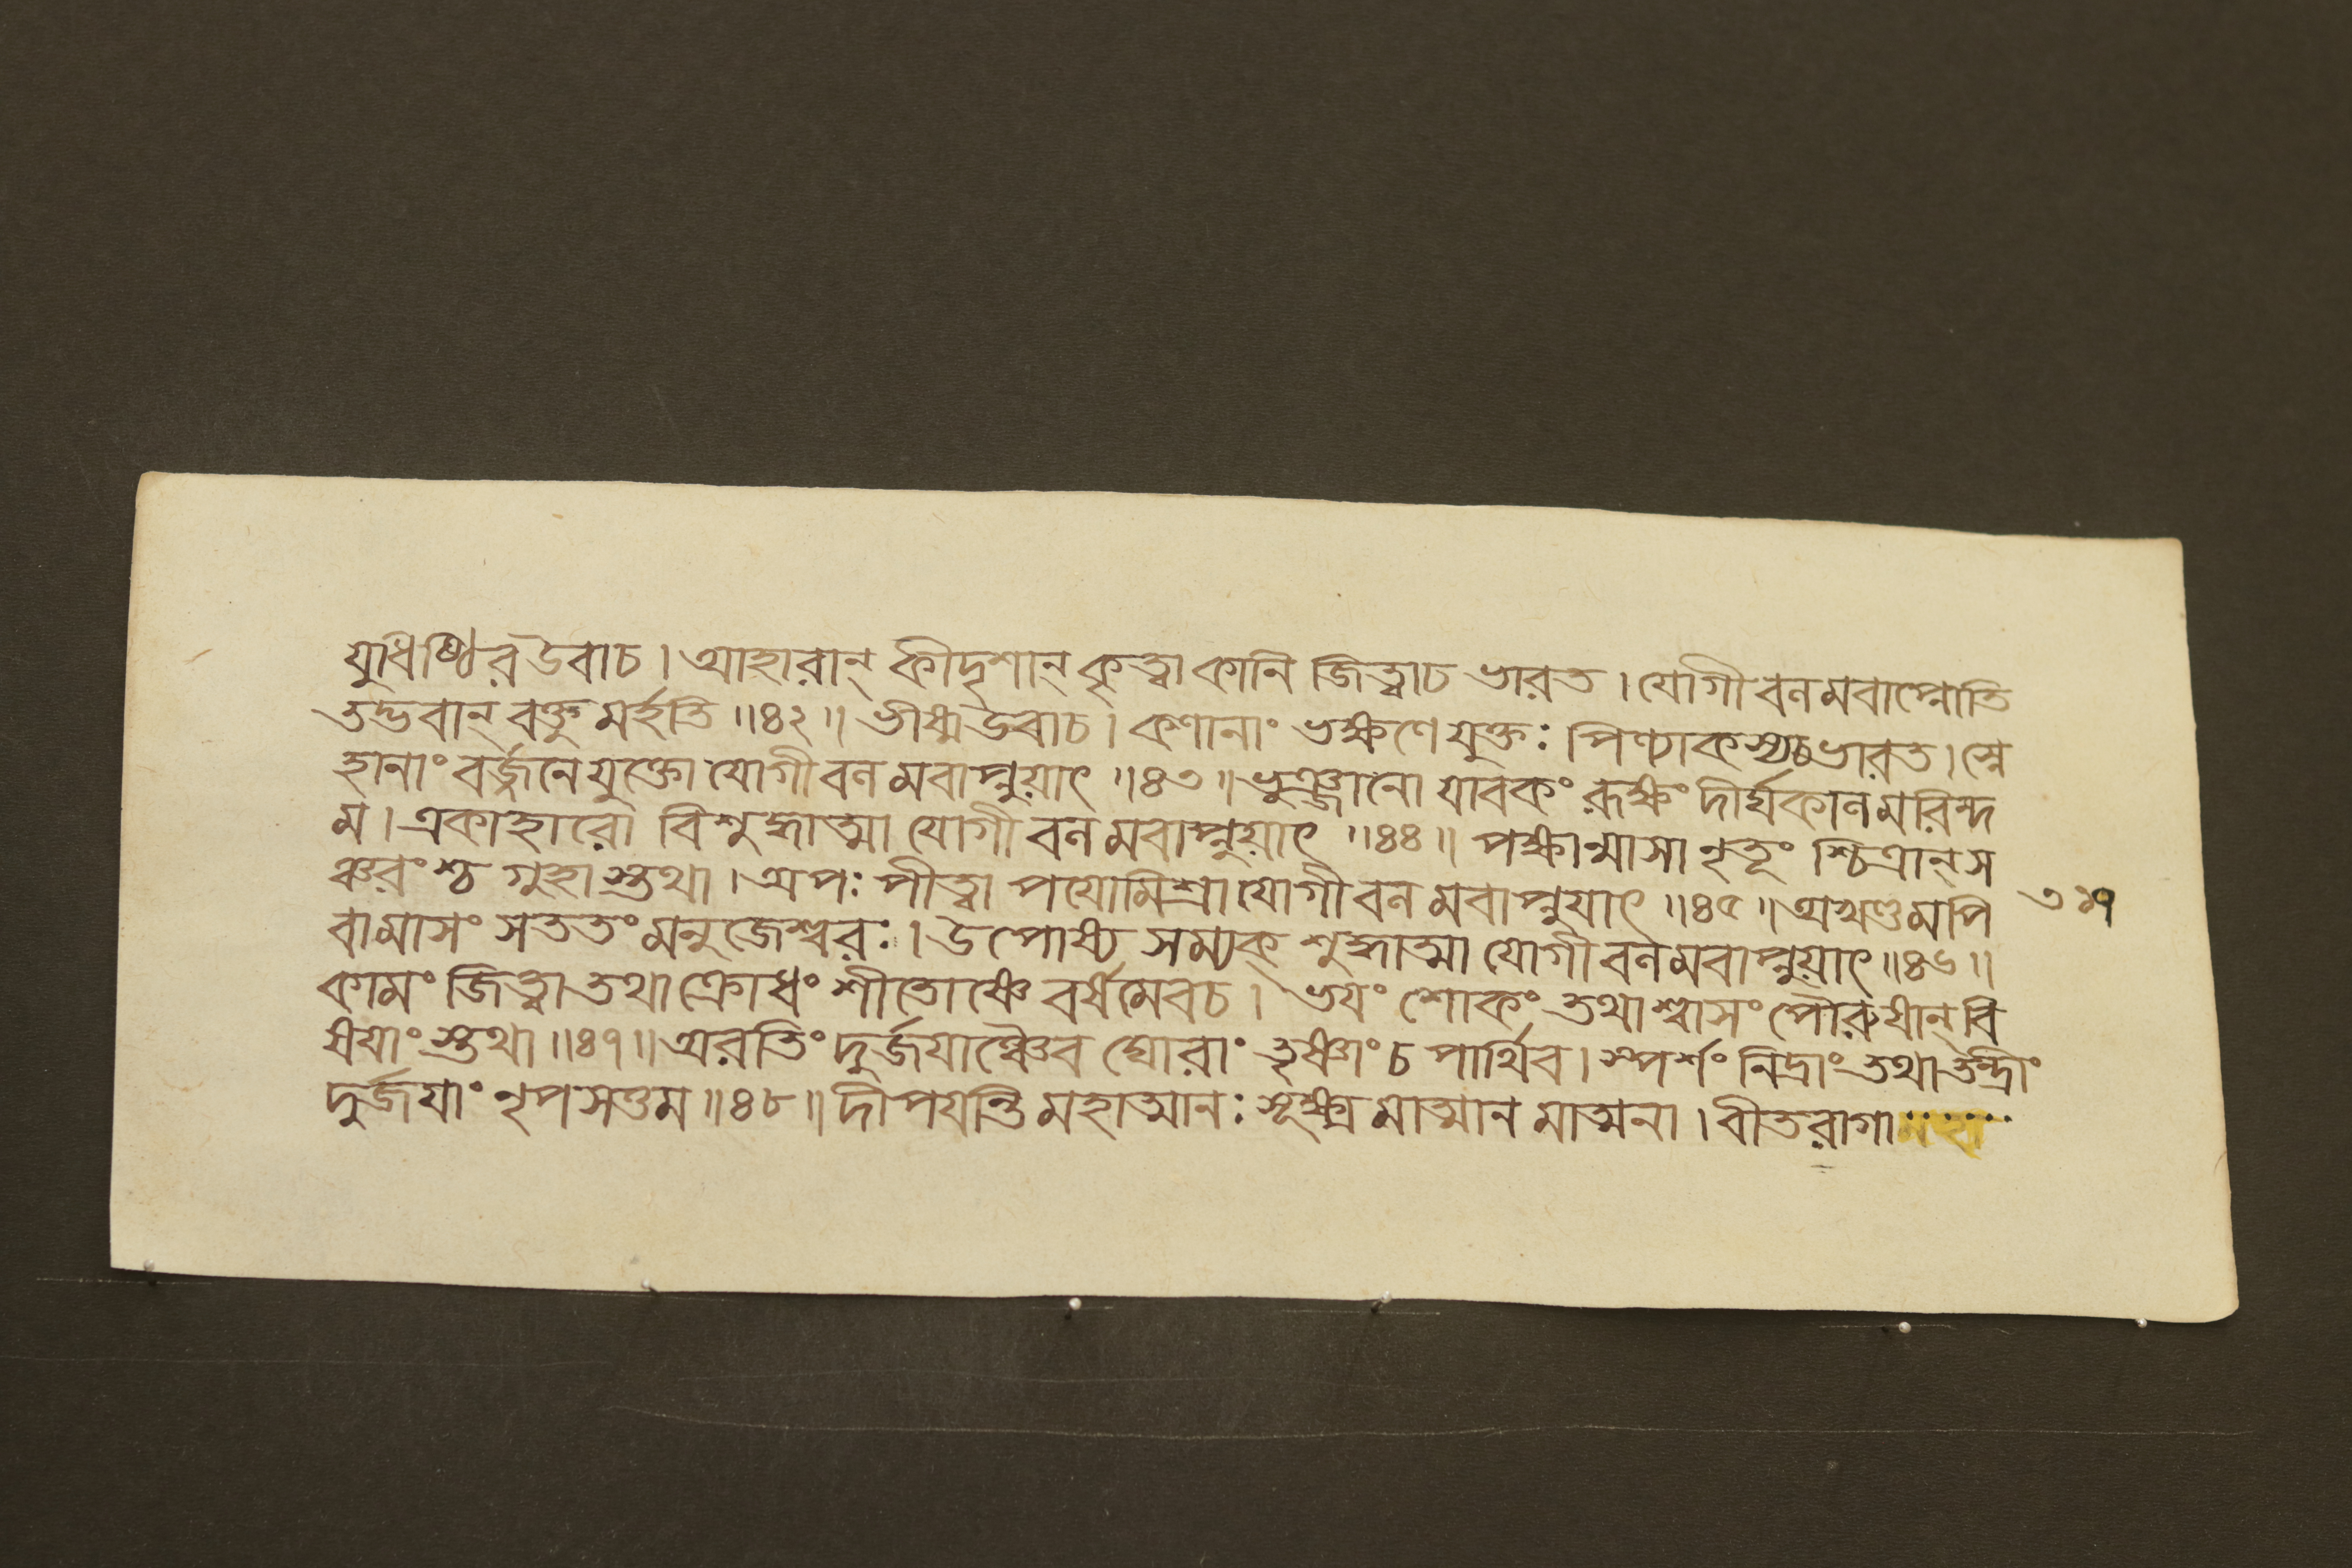 যুধিষ্ঠির উবাচ । আহারান্ কীদৃশান্ কৃত্বা কানি জিত্বাচ ভারত । যোগী বলমবাপ্নোতি
তদ্ভবান্ বক্তুমর্হতি ॥ ৪২ ॥ ভীষ্ম উবাচ । কণানাং ভক্ষণে যুক্তঃ পিণ্যাকস্যচ ভারত । স্নে
হানাং বর্জ্জনে যুক্তো যোগী বলমবাপ্নুয়াৎ ॥ ৪৩ ॥ ভুঞ্জানো যাবকং রূক্ষং দীর্ঘকালমরিন্দ
ম । একাহারো বিশুদ্ধাত্মা যোগী বলমবাপ্নুয়াৎ ॥ ৪৪ ॥ পক্ষান্মাসা নৃতূং শ্চিত্রান্ স
ঞ্চরংশ্চ গুহাস্তথা । অপঃ পীত্বা পয়োমিশ্রা যোগী বলমবাপ্নুয়াৎ ॥ ৪৫ ॥ অখণ্ডমপি
বামাসং সততং মনুজেশ্বরঃ । উপোষ্য সম্যক্ শুদ্ধাত্মা যোগী বলমবাপ্নুয়াৎ ॥ ৪৬ ॥
কামং জিত্বা তথা ক্রোধং শীতোষ্ণে বর্ষমেবচ । ভয়ং শোকং তথা শ্বাসং পৌরুষান্ বি
ষয়াংস্তথা ॥ ৪৭ ॥ অরতিং দুর্জয়াঞ্চৈব ঘোরাং তৃষ্ণাং চ পার্থিব । স্পর্শং নিদ্রাং তথা তন্দ্রিং
দুর্জয়াং নৃপসত্তম ॥ ৪৮ ॥ দীপয়ন্তি মহাত্মানঃ সূক্ষ্মমাত্মানমাত্মনা । বীতরাগা